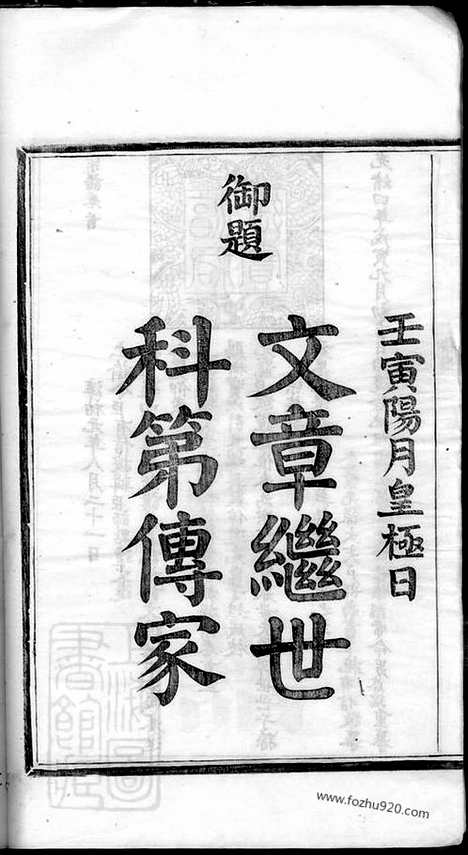 壬寅陽月皇極日
御題
文章繼世
科第傳家
www.fozhu920.com